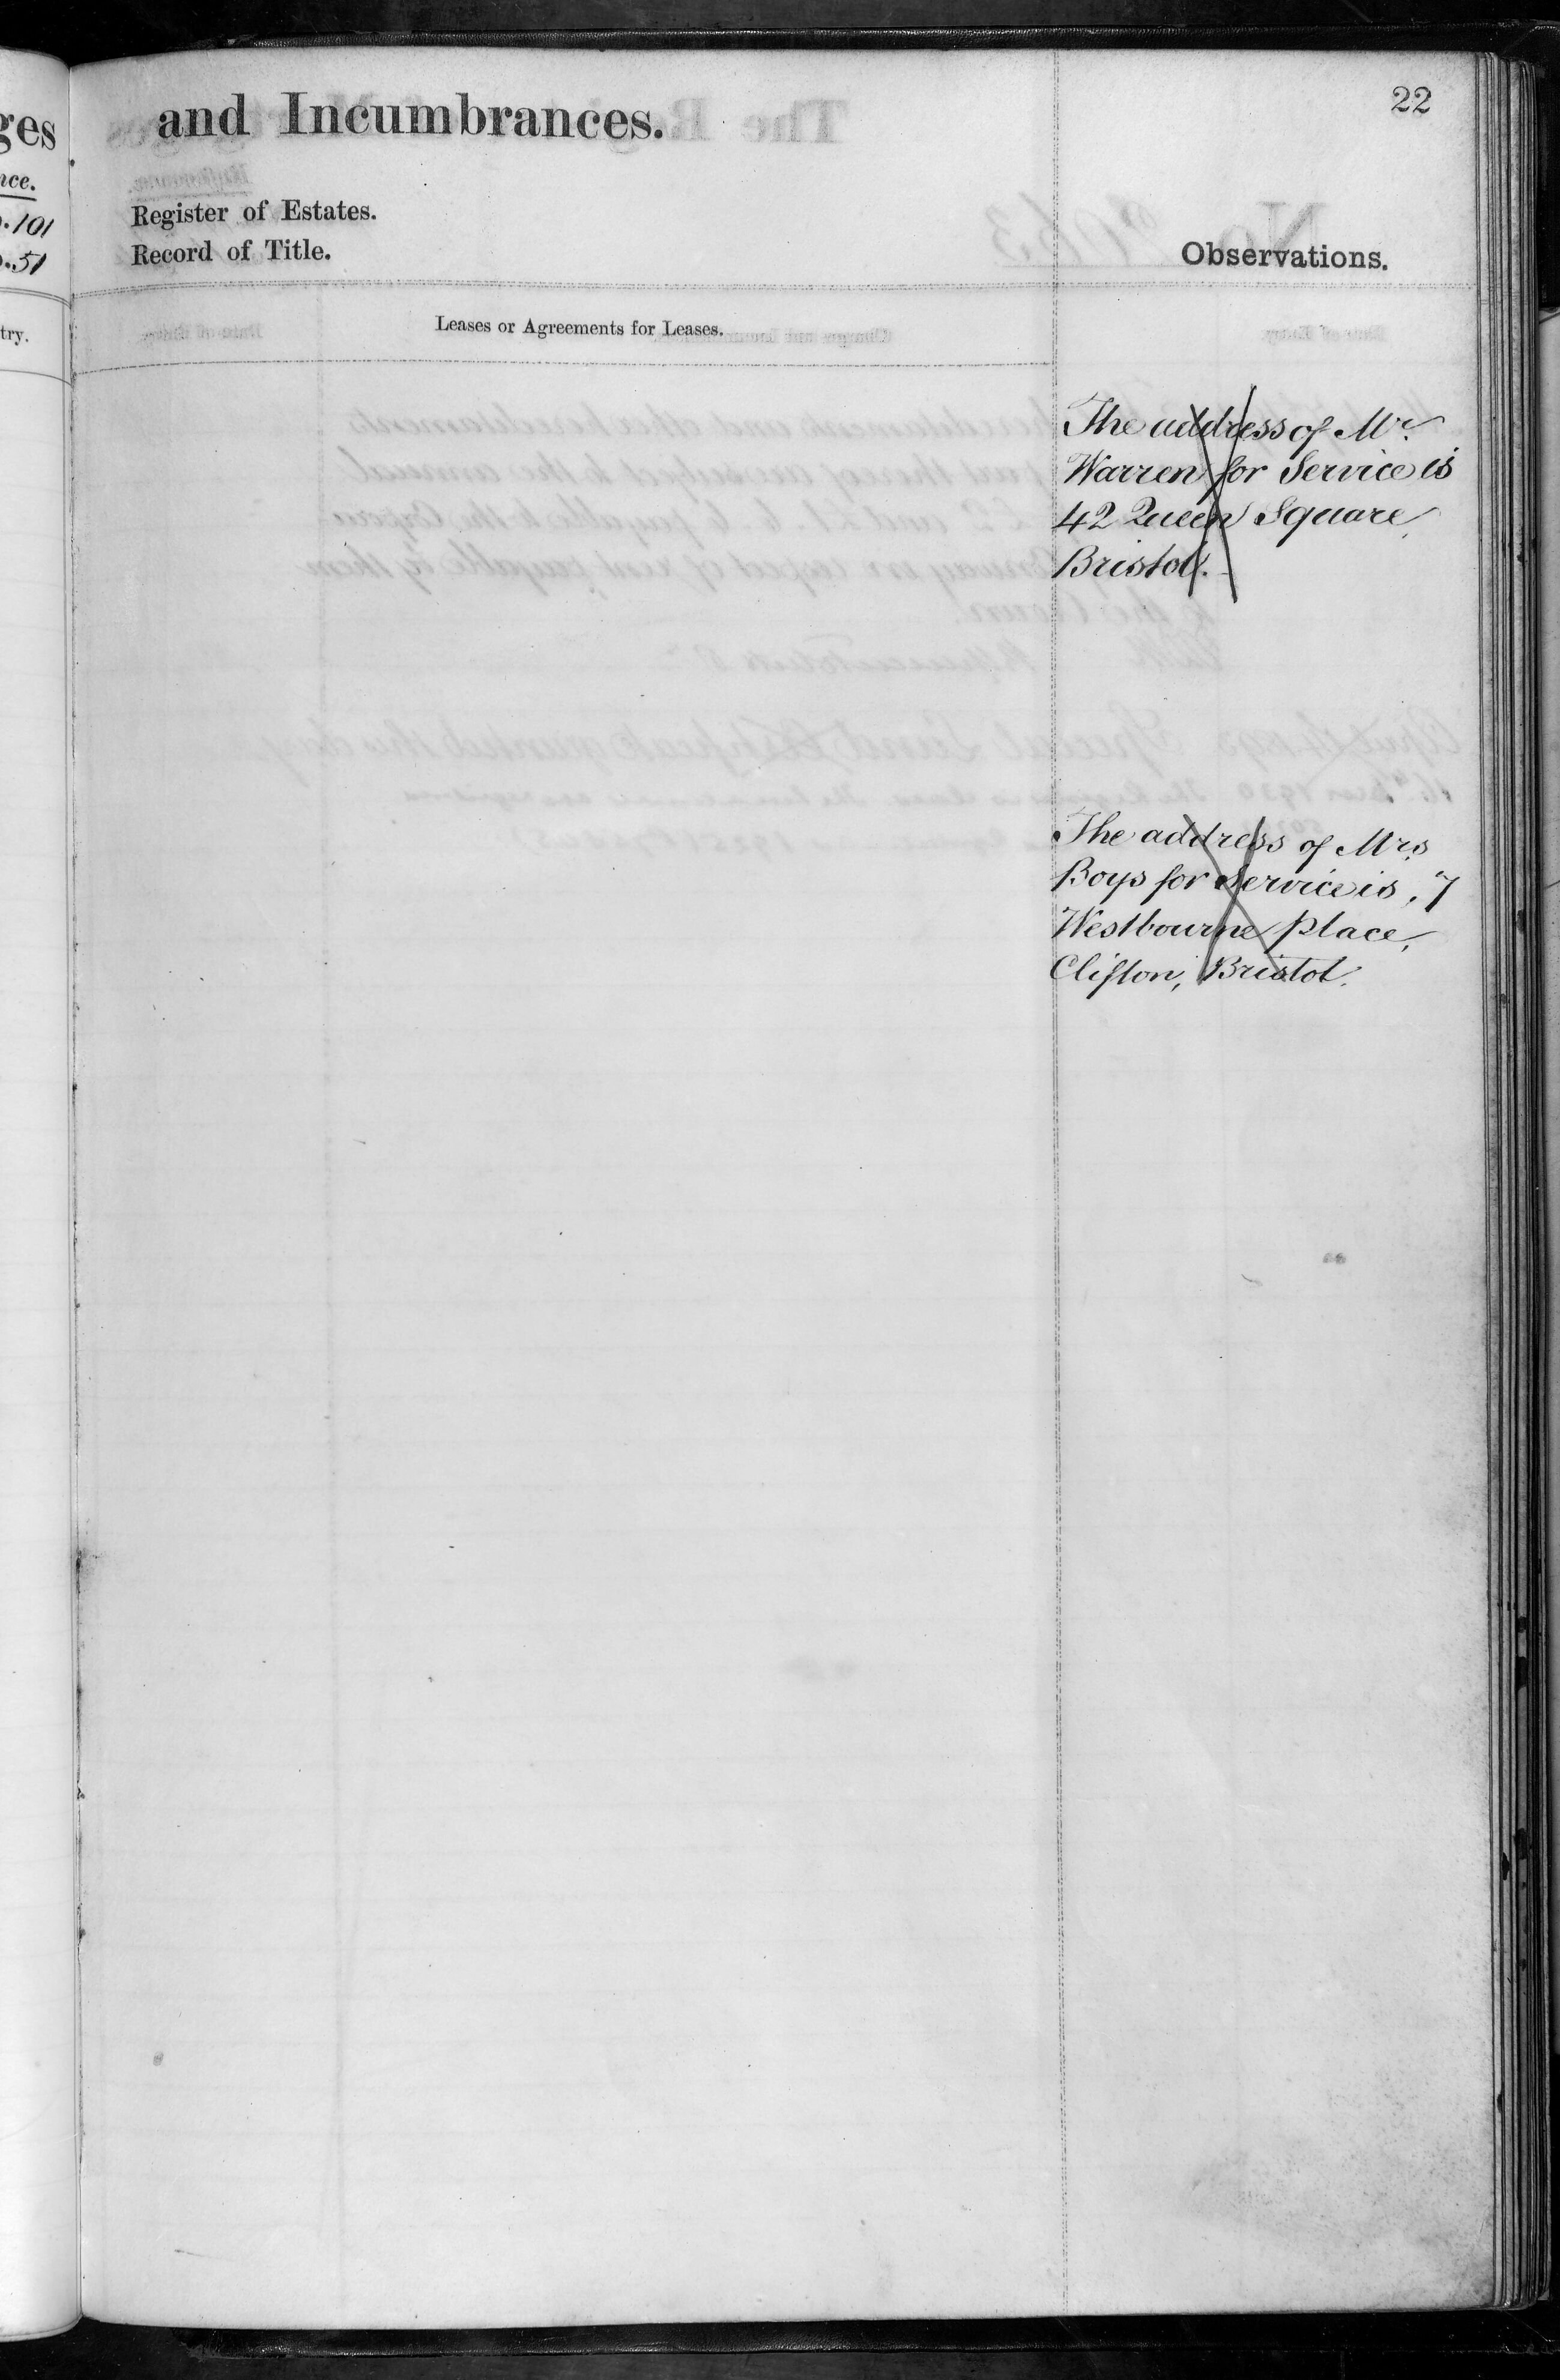 22
and Incumbrances.
Register of Estates.
Record of Title.
Observations.
Leases or Agreements for Leases.
The address of Mr.
Warren for Service is
42 Queen Square,
Bristol.
The address of Mrs
Boys for Service is, 7
Westbourne Place,
Clifton, Bristol.
ges
nce.
.101
.51
try.